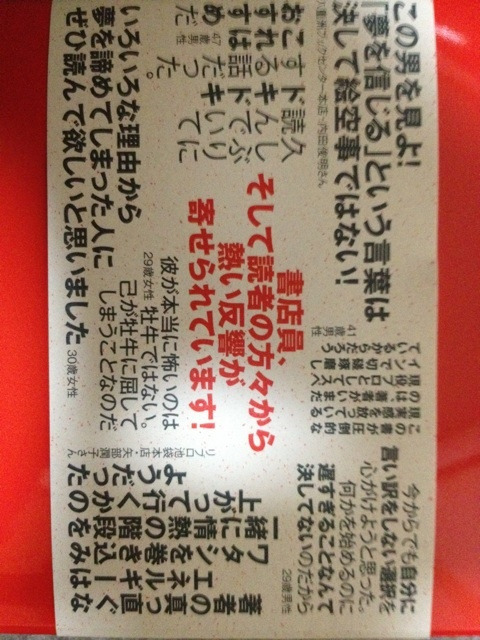 この男を見よ!
「夢を信じる」という言葉は
決して絵空事ではない!
八重洲ブックセンター本店・内田俊明さん
久しぶりに
読んでいて
ドキドキ
する話だった。
これは
おすすめだ
47歳男性
いろいろな理由から
夢を諦めてしまった人に
ぜひ読んで欲しいと思いました 30歳女性
書店員、
そして読者の方々から
熱い反響が
寄せられています!
彼が本当に怖いのは
牡牛ではない。
己が牡牛に屈して
しまうことなのだ
29歳女性
この書が圧倒的な
現実感を放っている
のは、著者がいまだ
現役プロとしてスペ
インで切磋琢磨し
ているからだろう
41歳男性
今からでも自分に
言い訳をしない選択を
心がけようと思った。
何かを始めるのに
遅すぎることなんて
決してないのだから
29歳男性
著者の真っ直ぐな
エネルギーは
ワタシを巻き込み
一緒に情熱の階段を
上がって行くかの
ようだった
リブロ池袋本店・矢部潤子さん